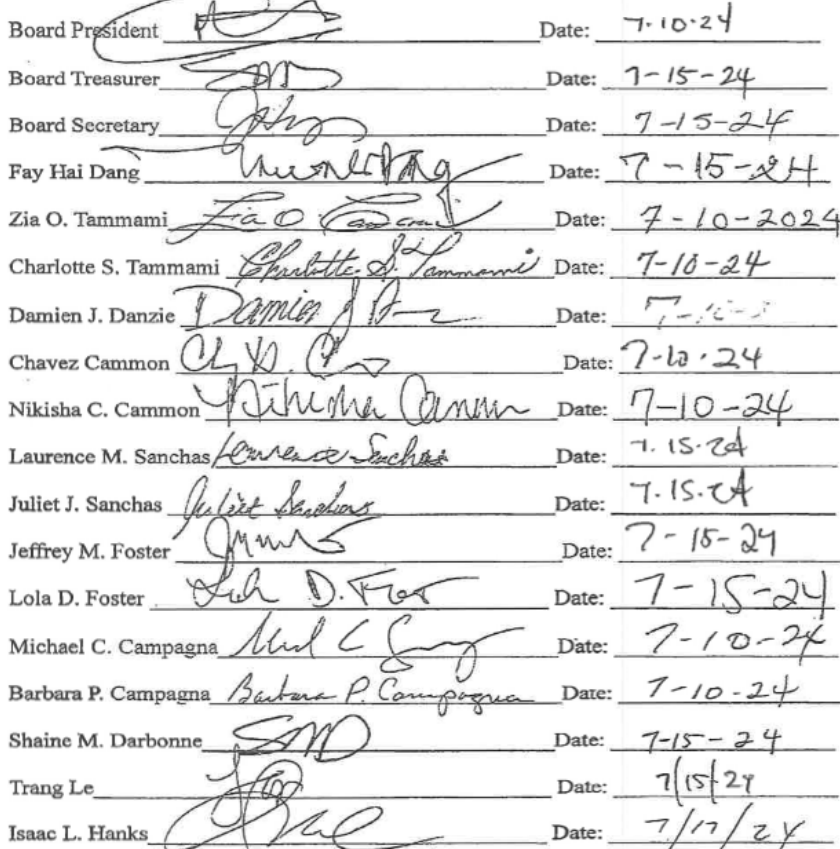 Board President Date: 7-10-24
Board Treasurer SMD Date: 7-15-24
Board Secretary Date: 7-15-24
Fay Hai Dang Date: 7-15-24
Zia O. Tammami Zia O Date: 7-10-2024
Charlotte S. Tammami Charlotte S. Tammami Date: 7-10-24
Damien J. Danzie Damien J Date:
Chavez Cammon Date: 7-10-24
Nikisha C. Cammon Nikisha Cammon Date: 7-10-24
Laurence M. Sanchas Laurence Sanchas Date: 7.15.24
Juliet J. Sanchas Juliet Sanchas Date: 7.15.24
Jeffrey M. Foster Date: 7-15-24
Lola D. Foster D. Date: 7-15-24
Michael C. Campagna C Date: 7-10-24
Barbara P. Campagna Barbara P. Campagna Date: 7-10-24
Shaine M. Darbonne SMD Date: 7-15-24
Trang Le Date: 7/15/24
Isaac L. Hanks Date: 7/17/24